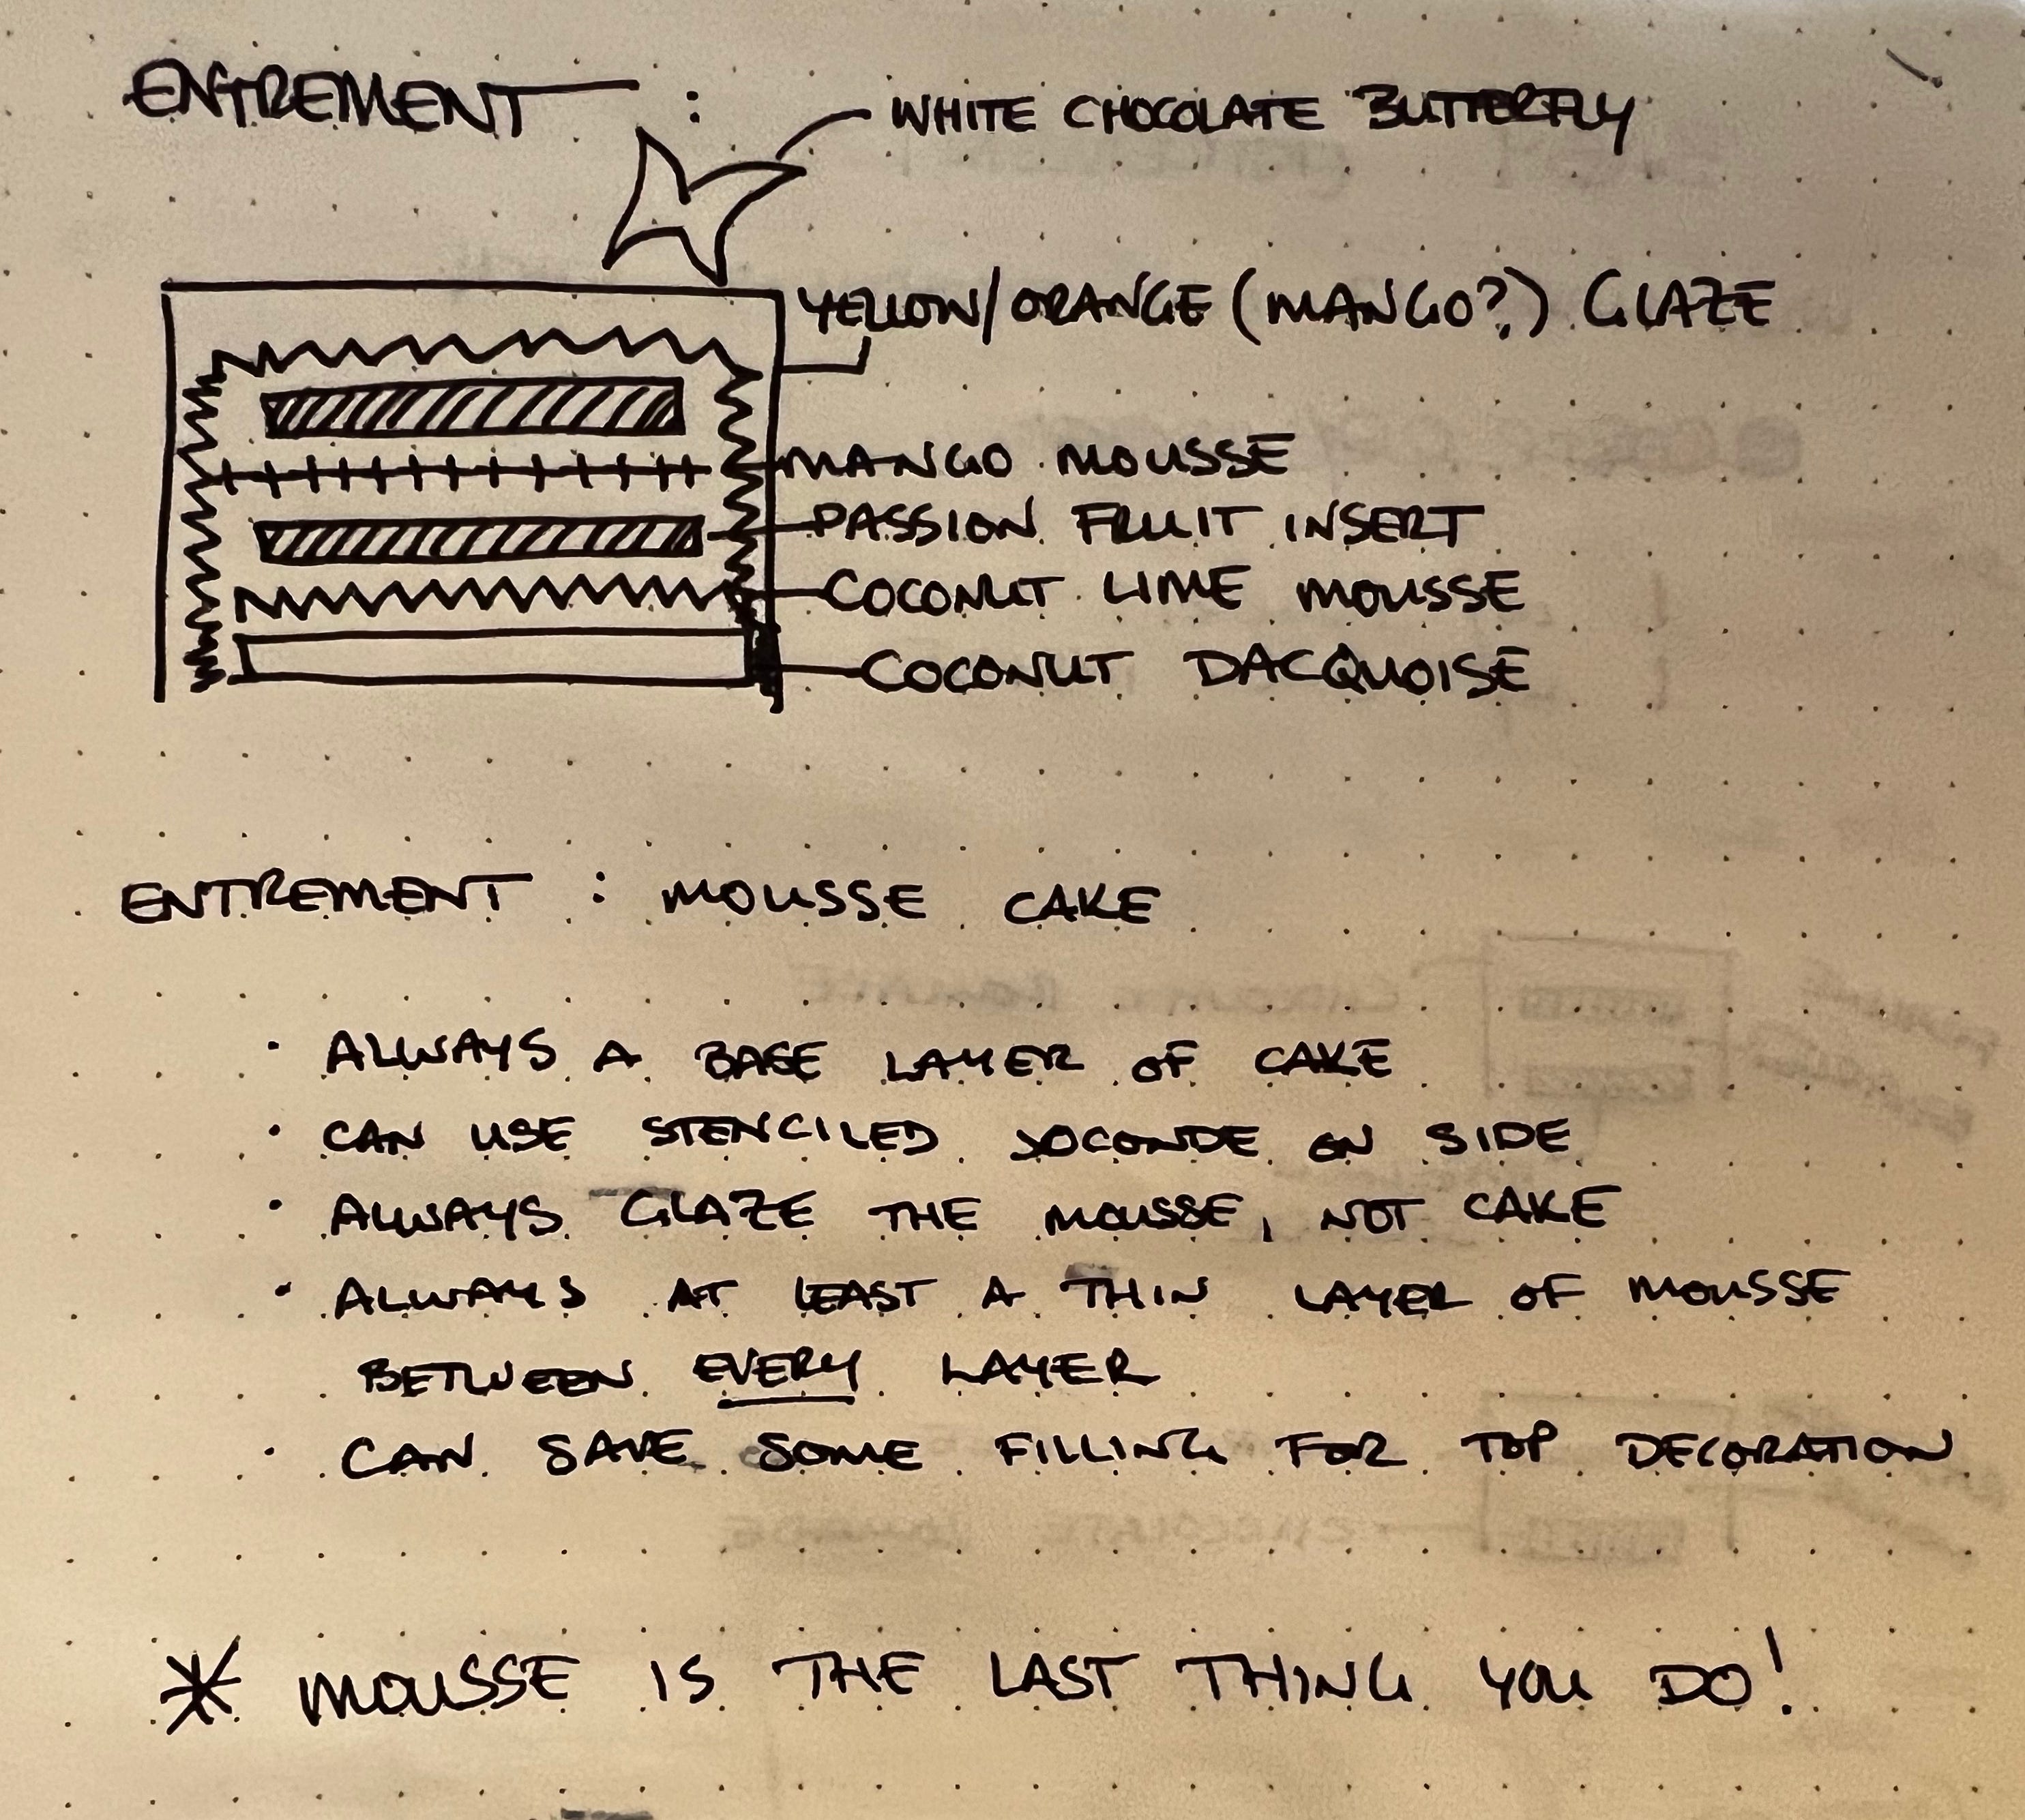 ENTREMENT :
WHITE CHOCOLATE BUTTERFLY
YELLOW/ORANGE (MANGO?) GLAZE
MANGO MOUSSE
PASSION FRUIT INSERT
COCONUT LIME MOUSSE
COCONUT DACQUOISE
ENTREMENT : MOUSSE CAKE
· ALWAYS A BASE LAYER OF CAKE
· CAN USE STENCILED JOCONDE ON SIDE
· ALWAYS GLAZE THE MOUSSE, NOT CAKE
· ALWAYS AT LEAST A THIN LAYER OF MOUSSE
BETWEEN EVERY LAYER
· CAN SAVE SOME FILLING FOR TOP DECORATION
* MOUSSE IS THE LAST THING YOU DO!